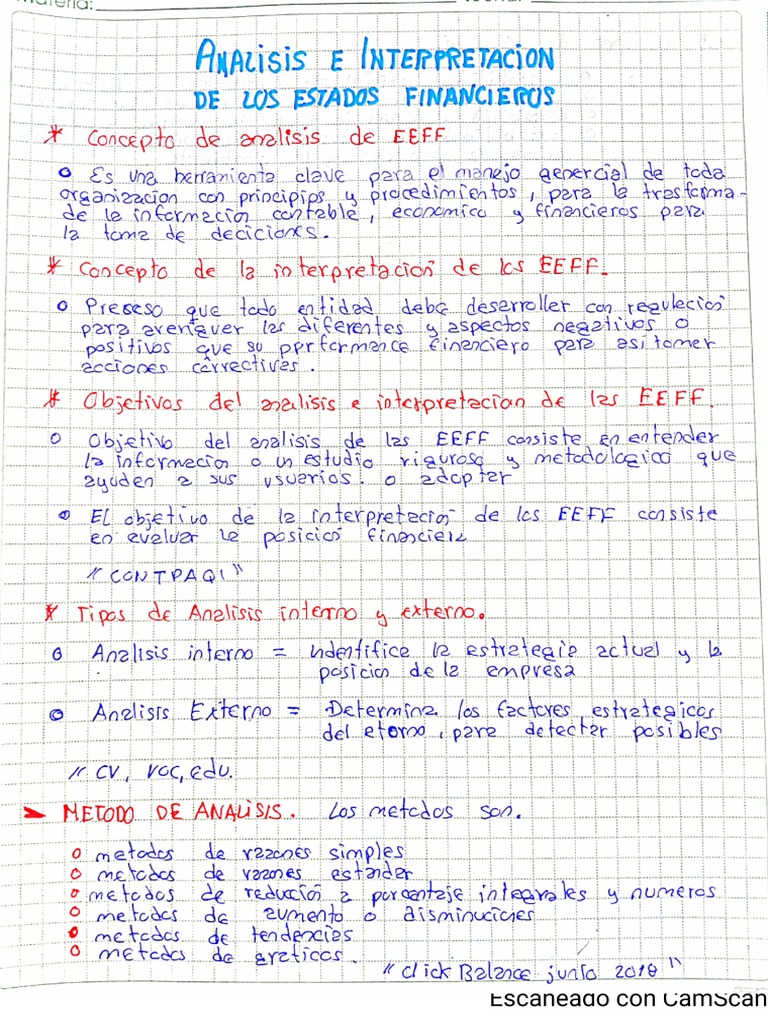 materia:
ANALISIS E INTERPRETACION
DE LOS ESTADOS FINANCIEROS
* Concepto de analisis de EEFF
o Es una herramienta clave para el manejo genercial de toda
organizacion con principips y procedimientos, para la trasforma-
de la informacion contable, economico y financieros para
la toma de deciciones.
* Concepto de la interpretacion de los EEFF.
o Preseso que todo entidad debe desarroller con regulacion
para avenguer las diferentes y aspectos negativos o
positivos que su performance financiero para asi tomer
acciones correctivas.
* Objetivos del analisis e interpretacion de las EEFF.
o Objetivo del analisis de las EEFF consiste en entender
la informacion o un estudio riguroso y metodologico que
ayuden a sus usuarios. o adopter
o El objetivo de la interpretacion de los EEFF consiste
en evaluar la posicion financiera
"CONTPAQI"
* Tipos de Analisis interno y externo.
o Analisis interno = indentifica la estrategia actual y la
posicion de la empresa
o Analisis Externo = Determina los factores estrategicos
del etorno, para detectar posibles
" CV, VOC, edu.
➤ METODO DE ANALISIS. Los metodos son.
o metodos de razones simples
o metodos de razones estander
o metodos de reducción a porcentaje integrales y numeros
o metodos de aumento o disminuciones
o metodos de tendencias
o metodos de graficos.
"Click Balance junio 2018"
Escaneado con CamScan